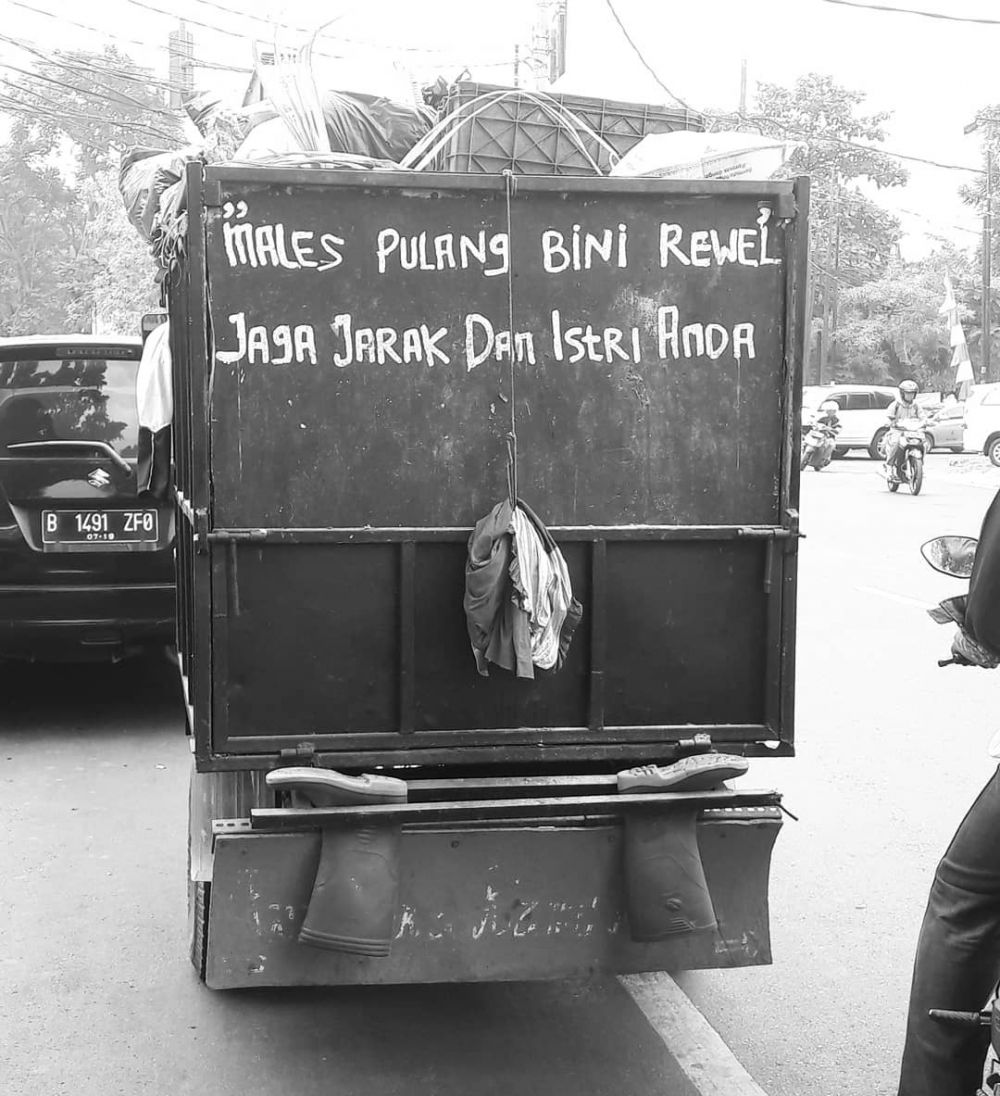 "MALES PULANG BiNi REWEL"
JAGA JARAK DAn IStRI AnDA
B 1491 ZFO
07·19